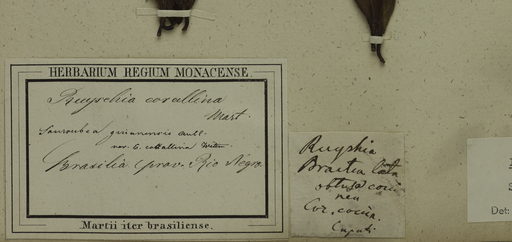 HERBARIUM REGIUM MONACENSE
Ruyschia corallina
Mart
Souroubea guianensis aubl.
var. corallina Wittm
Brasilia (prov. Rio Negro
Martii iter brasiliense.
Ruyshia
Bractea lata
obtusa
Cor. coccin.
Det: